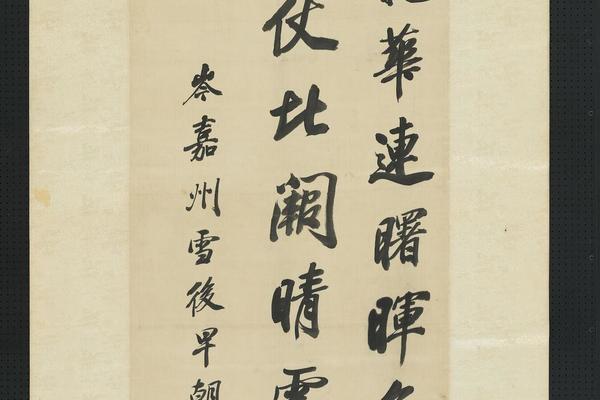 華連曙暉
仗北闕晴雲
岑嘉州雪後早朝